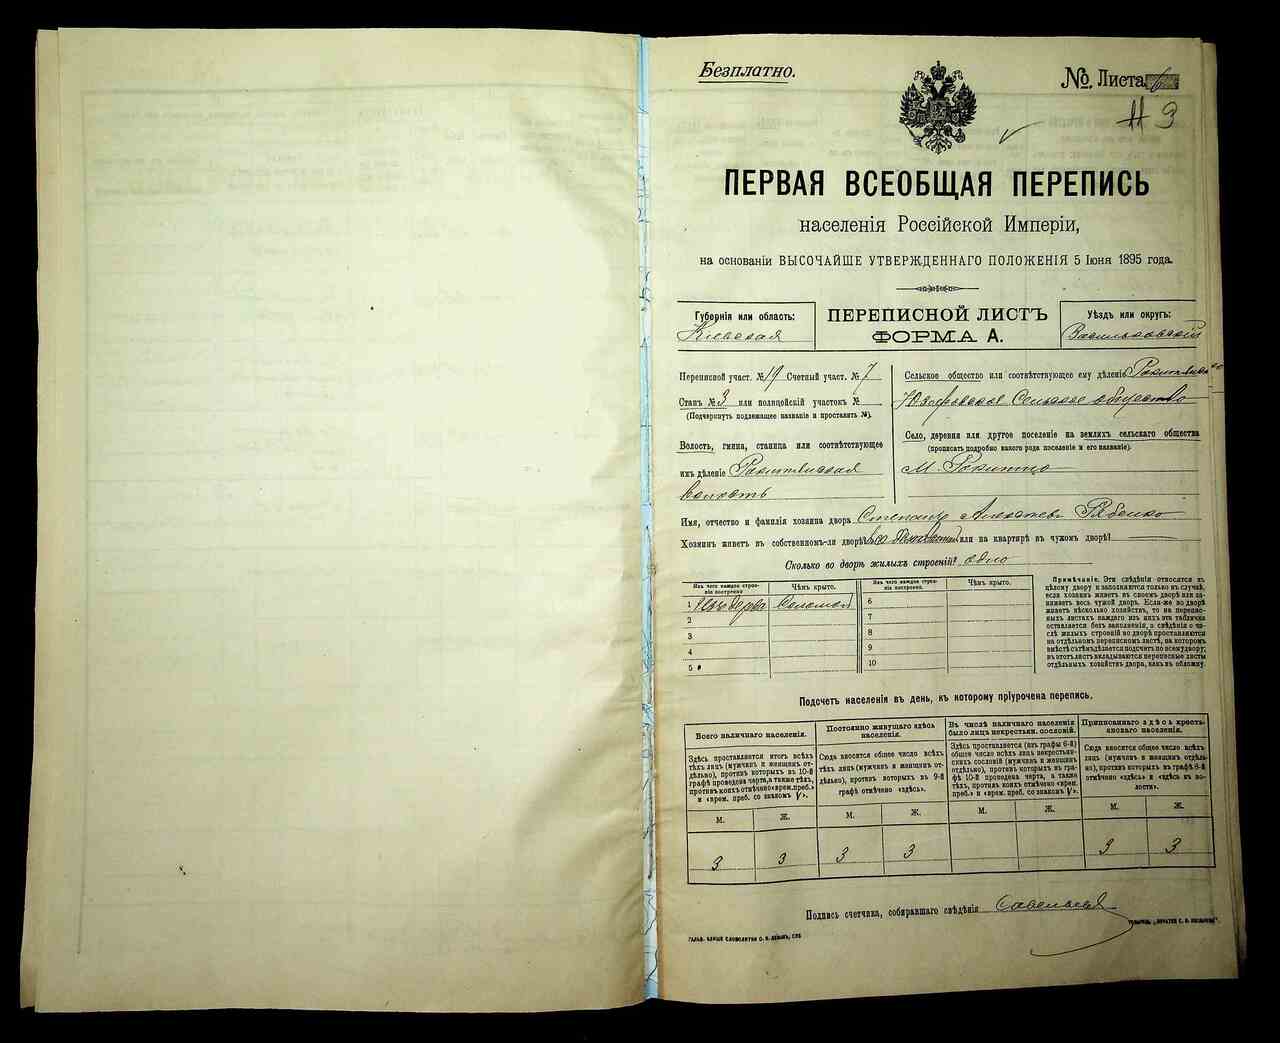 Безплатно.
№ Листа 6
# 3
ПЕРВАЯ ВСЕОБЩАЯ ПЕРЕПИСЬ
населенія Россійской Имперіи,
на основаніи ВЫСОЧАЙШЕ УТВЕРЖДЕННАГО ПОЛОЖЕНІЯ 5 Іюня 1895 года.
Губернія или область:
Кіевская
ПЕРЕПИСНОЙ ЛИСТЪ
ФОРМА А.
Уѣздъ или округъ:
Васильковскій
Переписной участ. № 19 Счетный участ. № 7
Станъ № 3 или полицейскій участокъ №
(Подчеркнуть подлежащее названіе и проставить №).
Волость, гмина, станица или соотвѣтствующее
имъ дѣленіе Ракитянская
волость
Сельское общество или соотвѣтствующее ему дѣленіе
Сельское общество
Село, деревня или другое поселеніе на земляхъ сельскаго общества
(прописать подробно какого рода поселеніе и его названіе).
М. Рокитно
Имя, отчество и фамилія хозяина двора Степанъ Рябенко
Хозяинъ живетъ въ собственномъ-ли дворѣ? или на квартирѣ въ чужомъ дворѣ?
Сколько во дворѣ жилыхъ строеній? одно
Изъ чего каждое строеніе построено
Чѣмъ крыто.
Изъ чего каждое строеніе построено.
Чѣмъ крыто.
1 Изъ дерева Соломой
2
3
4
5
6
7
8
9
10
Примѣчаніе. Эти свѣдѣнія относятся къ
цѣлому двору и заполняются только въ случаѣ,
если хозяинъ живетъ въ своемъ дворѣ или за-
нимаетъ весь чужой дворъ. Если-же во дворѣ
живетъ нѣсколько хозяйствъ, то на перепис-
ныхъ листахъ каждаго изъ нихъ эта табличка
оставляется безъ заполненія, а свѣдѣнія о чи-
слѣ жилыхъ строеній во дворѣ проставляются
на отдѣльномъ переписномъ листѣ, на которомъ
вмѣстѣ съ тѣмъ дѣлается подсчетъ по всему двору;
въ этотъ листъ вкладываются переписные листы
отдѣльныхъ хозяйствъ двора, какъ въ обложку.
Подсчетъ населенія въ день, къ которому пріурочена перепись.
Всего наличнаго населенія.
Здѣсь проставляется итогъ всѣхъ
тѣхъ лицъ (мужчинъ и женщинъ от-
дѣльно), противъ которыхъ въ 10-й
графѣ проведена черта, а также тѣхъ,
противъ коихъ отмѣчено «врем. преб.»
и «врем. преб. со знакомъ V».
Постоянно живущаго здѣсь
населенія.
Сюда вносится общее число всѣхъ
тѣхъ лицъ (мужчинъ и женщинъ от-
дѣльно), противъ которыхъ въ 9-й
графѣ отмѣчено «здѣсь».
Въ числѣ наличнаго населенія
было лицъ некрестьян. сословій.
Здѣсь проставляется (изъ графы 6-й)
общее число всѣхъ лицъ некрестьян-
скихъ сословій (мужчинъ и женщинъ
отдѣльно), противъ которыхъ въ гра-
фѣ 10-й проведена черта, а также
тѣхъ, противъ коихъ отмѣчено «врем.
преб.» и «врем. преб. со знакомъ V».
Приписаннаго здѣсь кресть-
янскаго населенія.
Сюда вносится общее число всѣхъ
лицъ (мужчинъ и женщинъ отдѣль-
но), противъ которыхъ въ графѣ 8-й
отмѣчено «здѣсь» и «здѣсь въ во-
лости».
М. Ж. М. Ж. М. Ж. М. Ж.
3 3 3 3 3 3
Подпись счетчика, собиравшаго свѣдѣнія